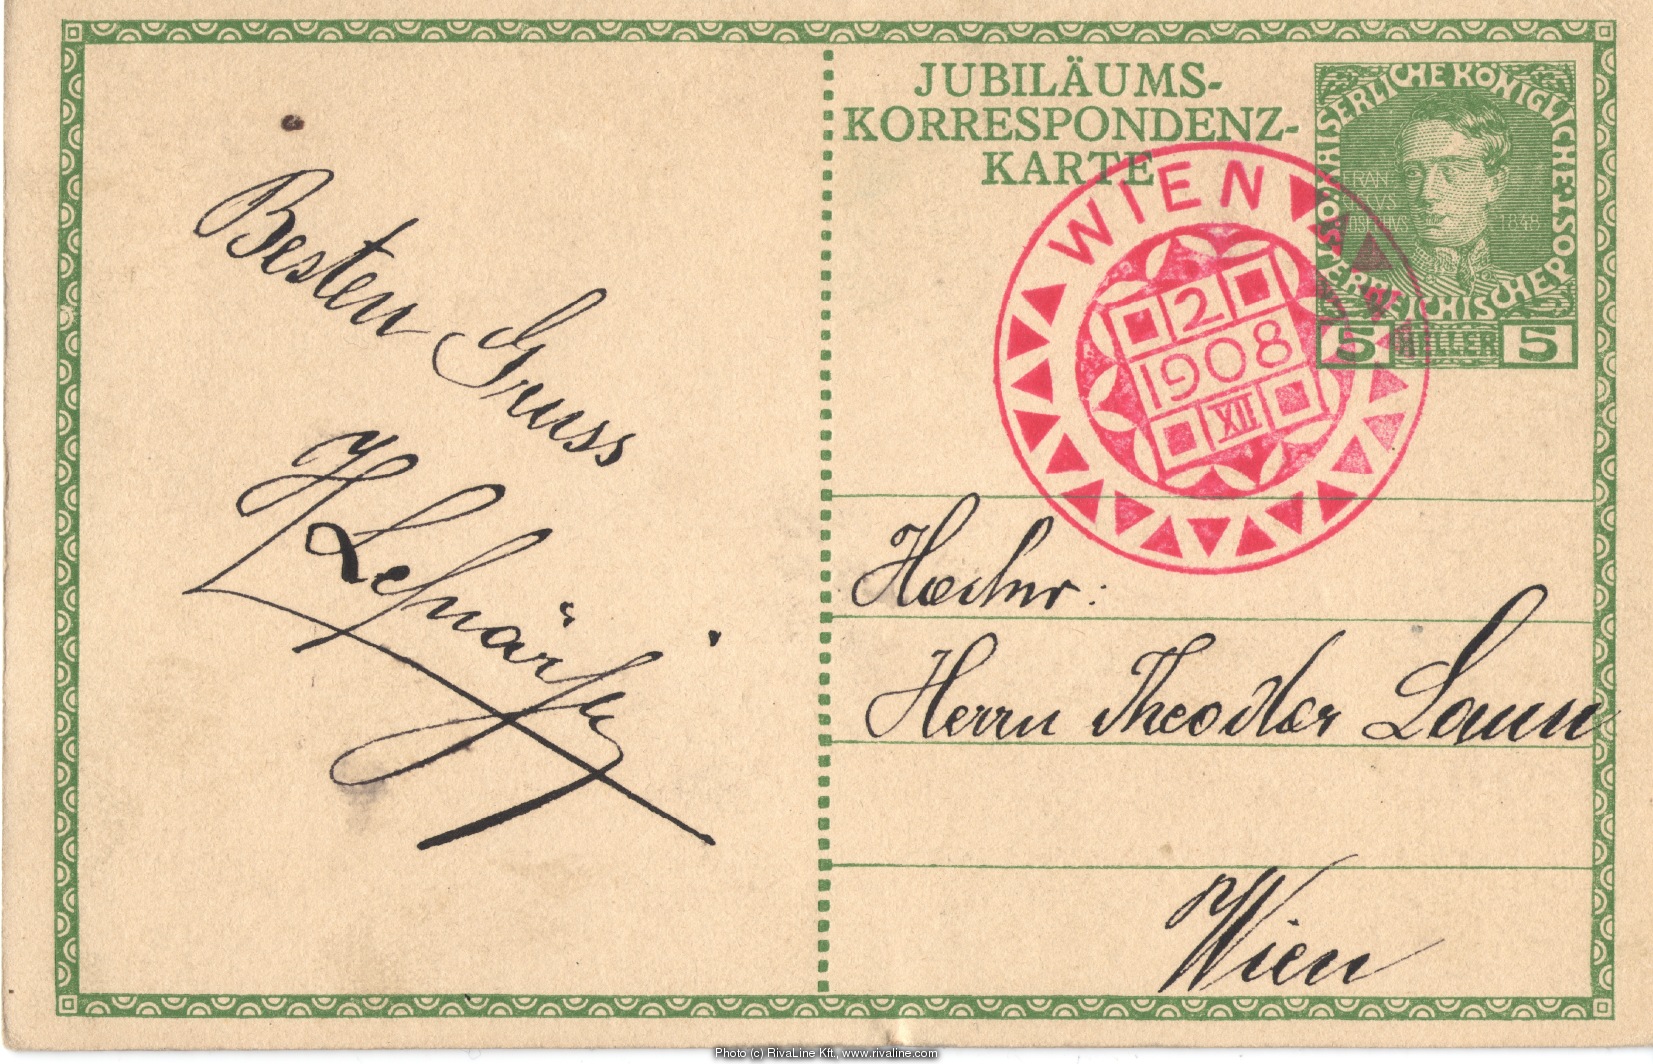 JUBILÄUMS-
KORRESPONDENZ-
KARTE
KAISERLICHE KÖNIGLICHE
ÖSTERREICHISCHE POST
FRAN
1848
5 HELLER 5
WIEN
2
1908
XII
Besten Gruss
Herrn Theodor
Wien
Photo (c) RivaLine Kft., www.rivaline.com